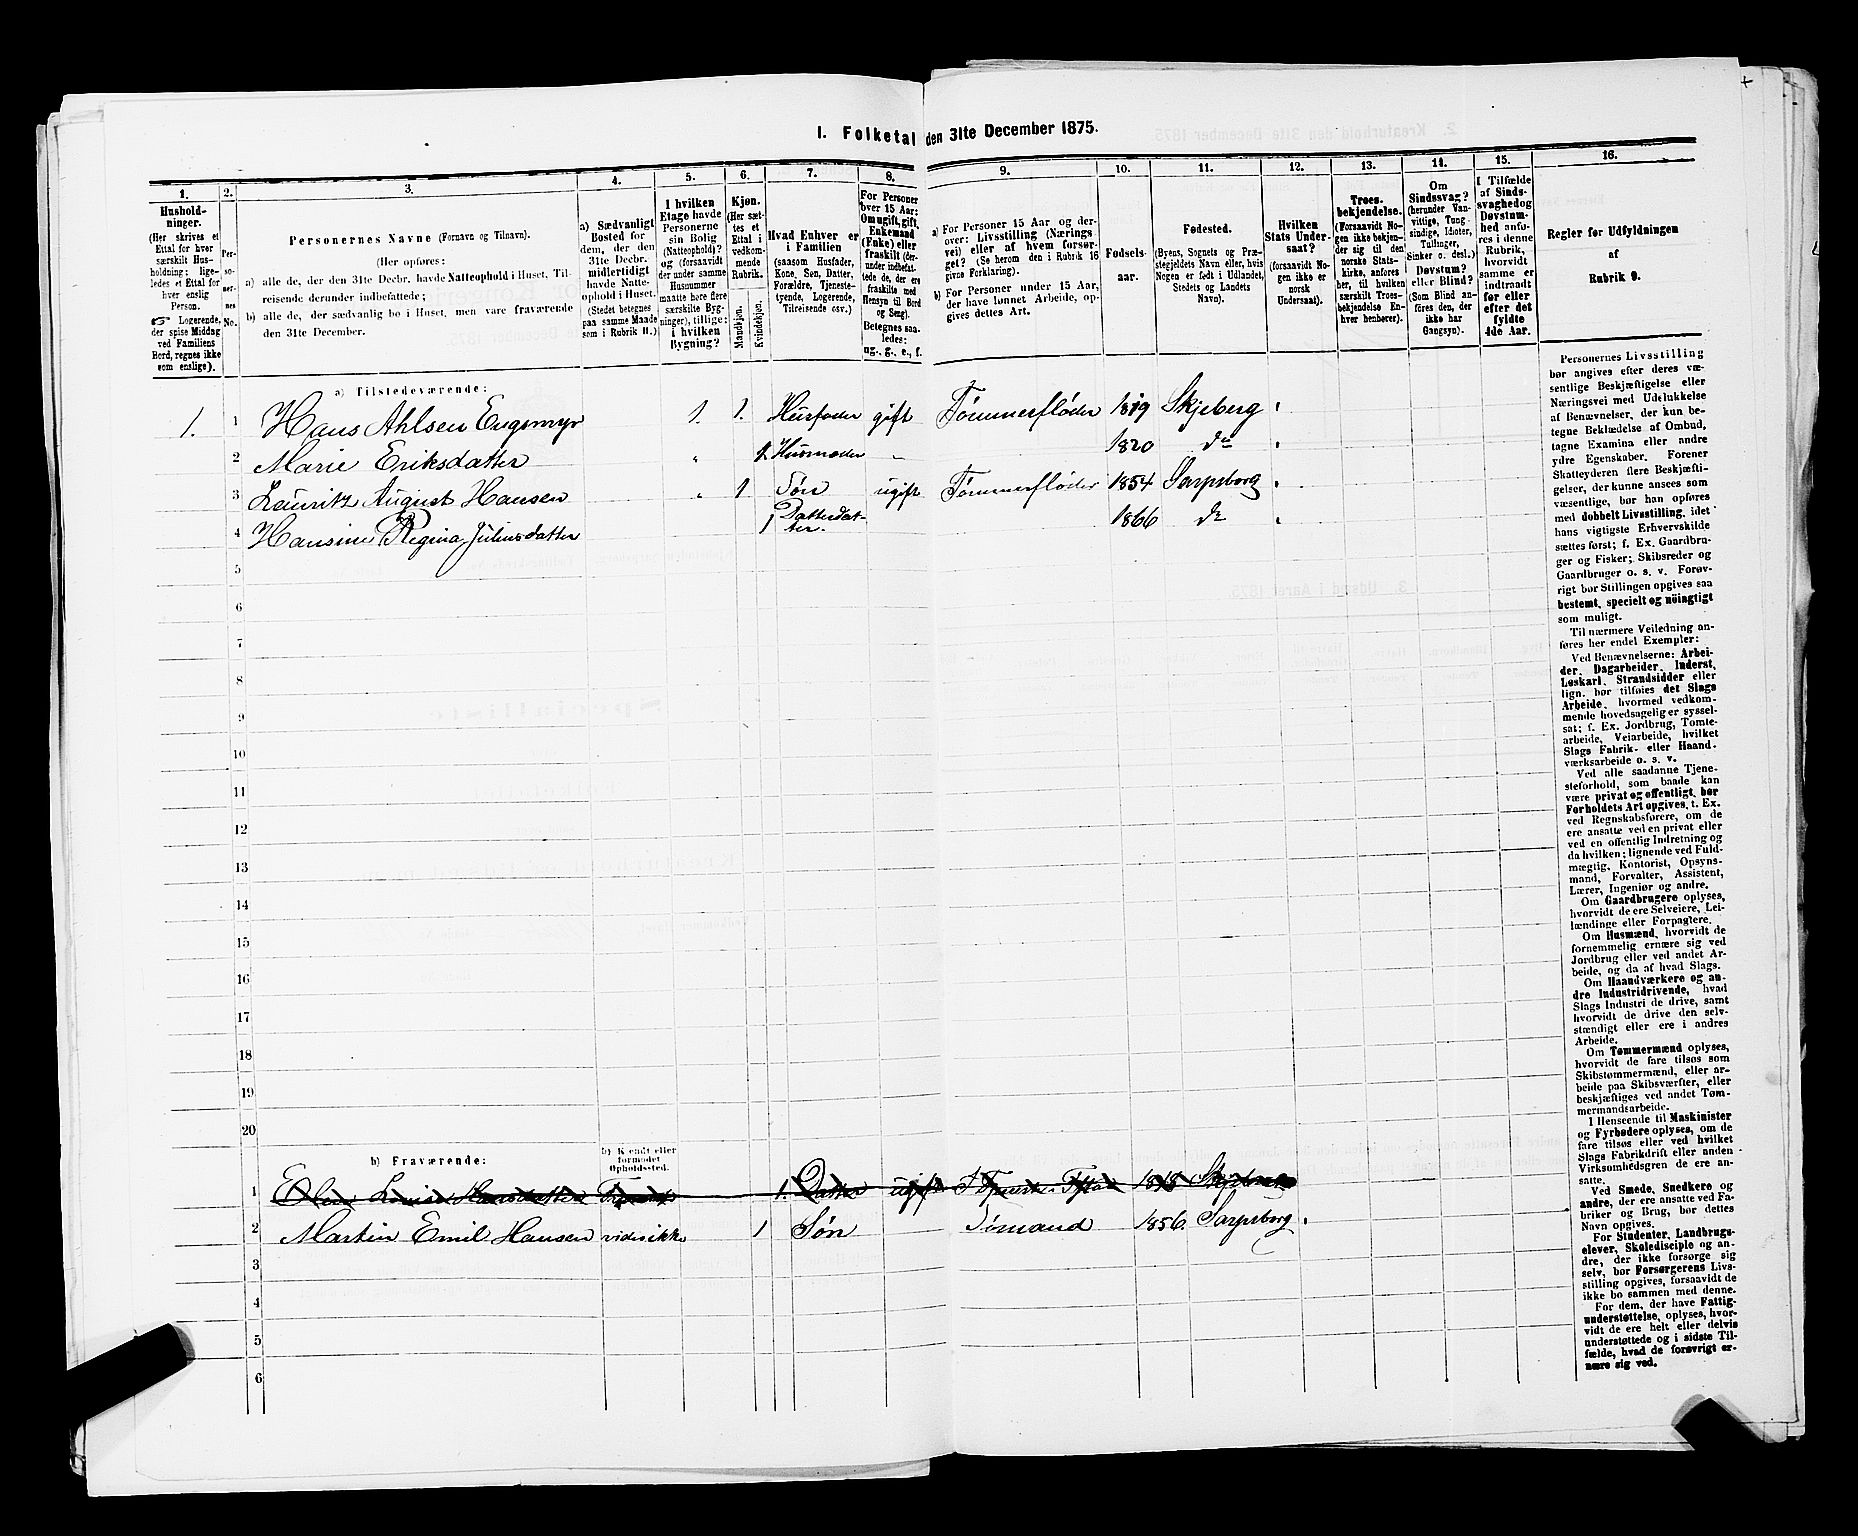 I. Folketal den 31te December 1875.
1.
Hushold-
ninger.
(Her skrives et
Ettal for hver
særskilt Hus-
holdning; lige-
ledes et Ettal for
hver enslig
Person.
☞ Logerende,
der spise Middag
ved Familiens
Bord, regnes ikke
som enslige).
2.
Per-
so-
ner-
nes
No.
3.
Personernes Navne (Fornavn og Tilnavn).
(Her opføres:
a) alle de, der den 31te Decbr. havde Natteophold i Huset, Til-
reisende derunder indbefattede;
b) alle de, der sædvanlig bo i Huset, men vare fraværende
den 31te December.
4.
a) Sædvanligt
Bosted for
dem, der den
31te Decbr.
midlertidigt
havde Natte-
ophold i Huset.
(Stedet betegnes
paa samme Maade
som i Rubrik 11.)
5.
I hvilken
Etage havde
Personerne
sin Bolig
(Natteophold)?
og (forsaavidt
der under samme
Husnummer
maatte høre flere
særskilte Byg-
ninger), tillige:
i hvilken
Bygning?
6.
Kjøn.
(Her sæt-
tes et
Ettal i
vedkom-
mende
Rubrik.
Mandkjøn.
Kvindekjøn.
7.
Hvad Enhver er
i Familien
(saasom Husfader,
Kone, Søn, Datter,
Forældre, Tjeneste-
tyende, Logerende,
Tilreisende osv.)
8.
For Personer
over 15 Aar:
Om ugift, gift,
Enkemand
(Enke) eller
fraskilt (der-
under indbefat-
tede, de, der ere
fraskilte med
Hensyn til Bord
og Seng).
Betegnes saa-
ledes:
ug., g., e., f.
9.
a) For Personer 15 Aar og der-
over: Livsstilling (Nærings-
vei) eller af hvem forsør-
get? (Se herom den i Rubrik 16
givne Forklaring).
b) For Personer under 15 Aar,
der have lønnet Arbeide, op-
gives dettes Art.
10.
Fødsels-
aar.
11.
Fødested.
(Byens, Sognets og Præ-
stegjeldets Navn eller, hvis
Nogen er født i Udlandet,
Stedets og Landets
Navn).
12.
Hvilken
Stats Under-
saat?
(forsaavidt No-
gen ikke er
norsk
Undersaat).
13.
Troes-
bekjendelse.
(Forsaavidt No-
gen ikke bekjen-
der sig til den
norske Stats-
kirke, anføres
her, til hvilken
særskilt Troes-
bekjendelse En-
hver henhører).
14.
Om
Sindssvag?
(herunder Van-
vittige, Tung-
sindige, Idioter,
Tullinger,
Sinker o. desl.)
Døvstum?
eller Blind?
(Som Blind an-
føres den, der
ikke har
Gangsyn).
15.
I Tilfælde
af Sinds-
svaghed og
Døvstum-
hed anfø-
res i denne
Rubrik,
hvorvidt
samme er
indtraadt
før eller
efter det
fyldte
4de Aar.
16.
Regler for Udfyldningen
af
Rubrik 9.
a) Tilstedeværende:
1. 1 Hans Ahlsen Engsmyr 1. 1. Husfader gift Tømmerfløder 1819 Skjeberg
2 Marie Eriksdatter " 1 Husmoder – 1820 do
3 Lauritz August Hansen " 1 Søn ugift Tømmerfløder 1854 Sarpsborg
4 Hansine Regina Juliusdatter 1 Datterdat-
ter. 1866 do
5
6
7
8
9
10
11
12
13
14
15
16
17
18
19
20
b) Fraværende:
b) Kjendt eller
formodet
Opholdssted.
1 Louise Hansdatter 1. Datter ugift Skjeberg
2 Martin Emil Hansen vides ikke 1 Søn Sømand 1856. Sarpsborg
3
4
5
6
Personernes Livsstilling
bør angives efter deres væ-
sentlige Beskjæftigelse eller
Næringsvei med Udelukkelse
af Benævnelser, der kun be-
tegne Beklædelse af Ombud,
tagne Examina eller andre
ydre Egenskaber. Forener
Skatteyderen flere Beskjæfti-
gelser, der kunne ansees som
væsentlige, bør han opføres
med dobbelt Livsstilling, idet
hans vigtigste Erhvervskilde
sættes først; f. Ex. Gaardbru-
ger og Fisker; Skibsreder og
Gaardbruger o. s. v. Forøv-
rigt bør Stillingen opgives saa
bestemt, specielt og nöiagtigt
som muligt.
Til nærmere Veiledning an-
føres her endel Exempler:
Ved Benævnelserne: Arbei-
der, Dagarbeider, Inderst,
Løskarl, Strandsidder eller
lign. bør tilføies det Slags
Arbeide, hvormed vedkom-
mende hovedsagelig er syssel-
sat; f. Ex. Jordbrug, Tomte-
arbeide, Veiarbeide, hvilket
Slags Fabrik- eller Haand-
værksarbeide o. s. v.
Ved alle saadanne Tjene-
steforhold, som baade kan
være privat og offentligt, bør
Forholdets Art opgives, t. Ex.
ved Regnskabsførere, om de
ere ansatte ved en privat eller
ved en offentlig Indretning og
da hvilken; lignende ved Fuld-
mægtig, Kontorist, Opsyns-
mand, Forvalter, Assistent,
Lærer, Ingeniør og andre.
Om Gaardbrugere oplyses,
hvorvidt de ere Selveiere, Lei-
lændinge eller Forpagtere.
Om Husmænd, hvorvidt de
fornemmelig ernære sig ved
Jordbrug eller ved andet Ar-
beide, og da af hvad Slags.
Om Haandværkere og an-
dre Industridrivende, hvad
Slags Industri de drive, samt
hvorvidt de drive den selv-
stændigt eller ere i andres
Arbeide.
Om Tømmermænd oplyses,
hvorvidt de fare tilsøs som
Skibstømmermænd, eller ar-
beide paa Skibsværfter, eller
beskjæftiges ved andet Tøm-
mermandsarbeide.
I Henseende til Maskinister
og Fyrbødere oplyses, om de
fare tilsøs eller ved hvilket
Slags Fabrikdrift eller anden
Virksomhedsgren de ere an-
satte.
Ved Smede, Snedkere og
andre, der ere ansatte ved Fa-
briker og Brug, bør dettes
Navn opgives.
For Studenter, Landbrugs-
elever, Skoledisciple og an-
dre, der ikke forsørge sig
selv, bør Forsørgerens Livs-
stilling opgives, forsaavidt de
ikke bo sammen med denne.
For dem, der have Fattig-
understøttelse, oplyses, hvor-
vidt de ere helt eller delvis
understøttede og i sidste Til-
fælde, hvad de forøvrigt er-
nære sig ved.